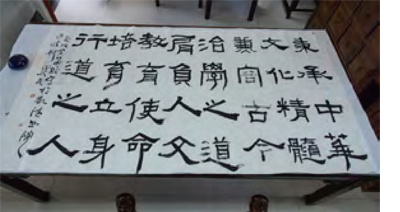 秉承中華
文化精髓
兼古今
治學之道
肩負人文
教育使命
培育立身
行道之人